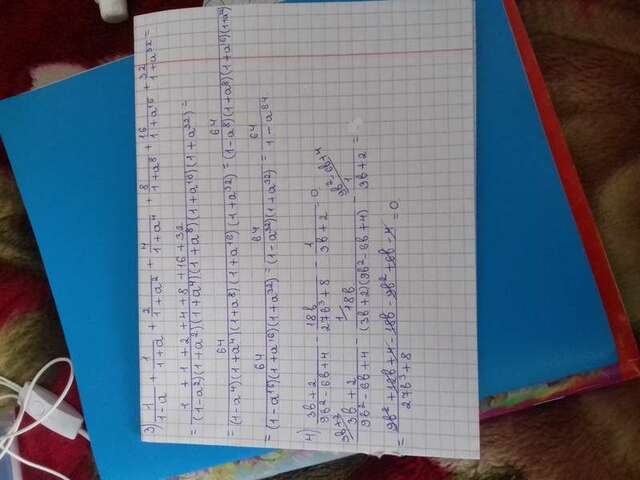 3) 1/(1-a) + 1/(1+a) + 2/(1+a²) + 4/(1+a⁴) + 8/(1+a⁸) + 16/(1+a¹⁶) + 32/(1+a³²) =
= (1 + 1 + 2 + 4 + 8 + 16 + 32)/((1-a²)(1+a²)(1+a⁴)(1+a⁸)(1+a¹⁶)(1+a³²)) =
= 64/((1-a⁴)(1+a⁴)(1+a⁸)(1+a¹⁶)(1+a³²)) = 64/((1-a⁸)(1+a⁸)(1+a¹⁶)(1+a³²))
= 64/((1-a¹⁶)(1+a¹⁶)(1+a³²)) = 64/((1-a³²)(1+a³²)) = 64/(1-a⁶⁴)
4) (3b+2)/(9b²-6b+4) - 18b/(27b³+8) - 1/(3b+2) = 0
3b+2/ 1/ 9b²-6b+4/
(3b+2)/(9b²-6b+4) - 18b/((3b+2)(9b²-6b+4)) - 1/(3b+2) =
= (9b²+12b+4-18b-9b²+6b-4)/(27b³+8) = 0